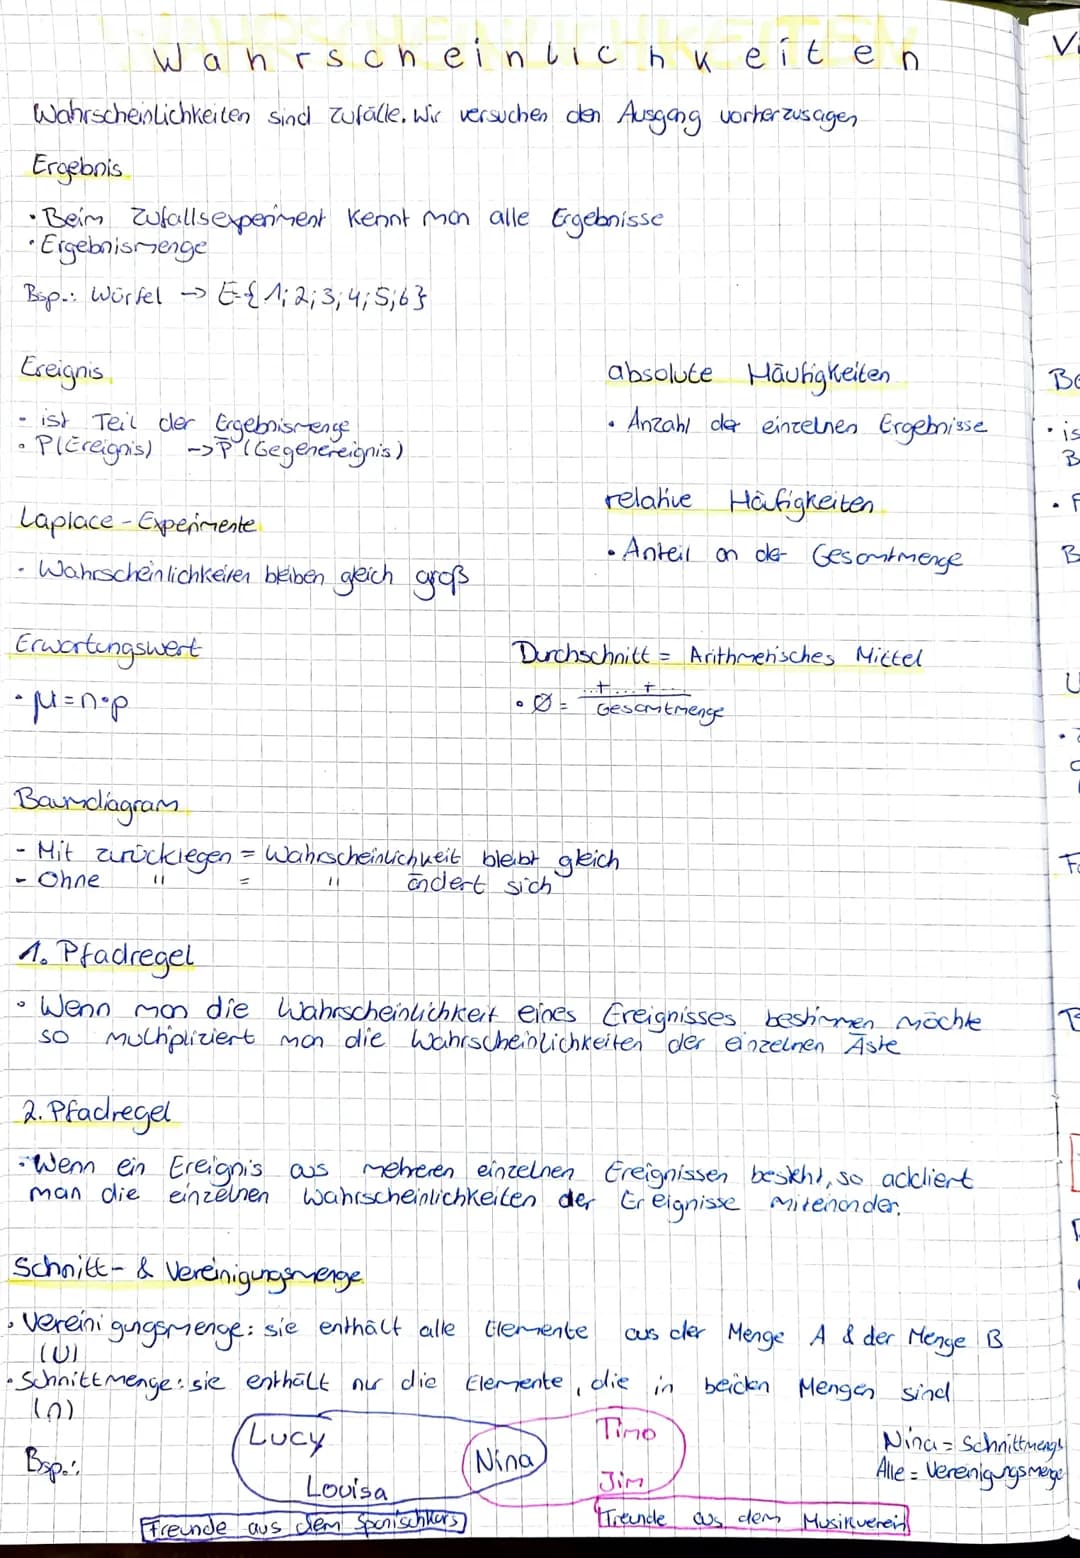 Wahrscheinlichkeiten
Wahrscheinlichkeiten sind Zufälle. Wir versuchen den Ausgang vorherzusagen
Ergebnis
• Beim Zufallsexperiment kennt man alle Ergebnisse
• Ergebnismenge
Bsp.: Würfel → E={1;2;3;4;5;6}
Ereignis
- ist Teil der Ergebnismenge
• P(Ereignis) -> P̄ (Gegenereignis)
absolute Häufigkeiten
• Anzahl der einzelnen Ergebnisse
Laplace - Experimente
• Wahrscheinlichkeiten bleiben gleich groß
relative Häufigkeiten
• Anteil an der Gesamtmenge
Erwartungswert
• μ=n•p
Durchschnitt = Arithmetisches Mittel
• Ø = ...+...+... / Gesamtmenge
Baumdiagram
- Mit zurücklegen = Wahrscheinlichkeit bleibt gleich
- Ohne " = " ändert sich
1. Pfadregel
• Wenn man die Wahrscheinlichkeit eines Ereignisses bestimmen möchte
so multipliziert man die Wahrscheinlichkeiten der einzelnen Äste
2. Pfadregel
• Wenn ein Ereignis aus mehreren einzelnen Ereignissen besteht, so addiert
man die einzelnen Wahrscheinlichkeiten der Ereignisse miteinander.
Schnitt- & Vereinigungsmenge
• Vereinigungsmenge: sie enthält alle Elemente aus der Menge A & der Menge B
(U)
• Schnittmenge: sie enthält nur die Elemente, die in beiden Mengen sind
(∩)
Bsp.:
Lucy
Louisa
Nina
Timo
Jim
Nina = Schnittmenge
Alle = Vereinigungsmenge
Freunde aus dem Spanischkurs
Freunde aus dem Musikverein